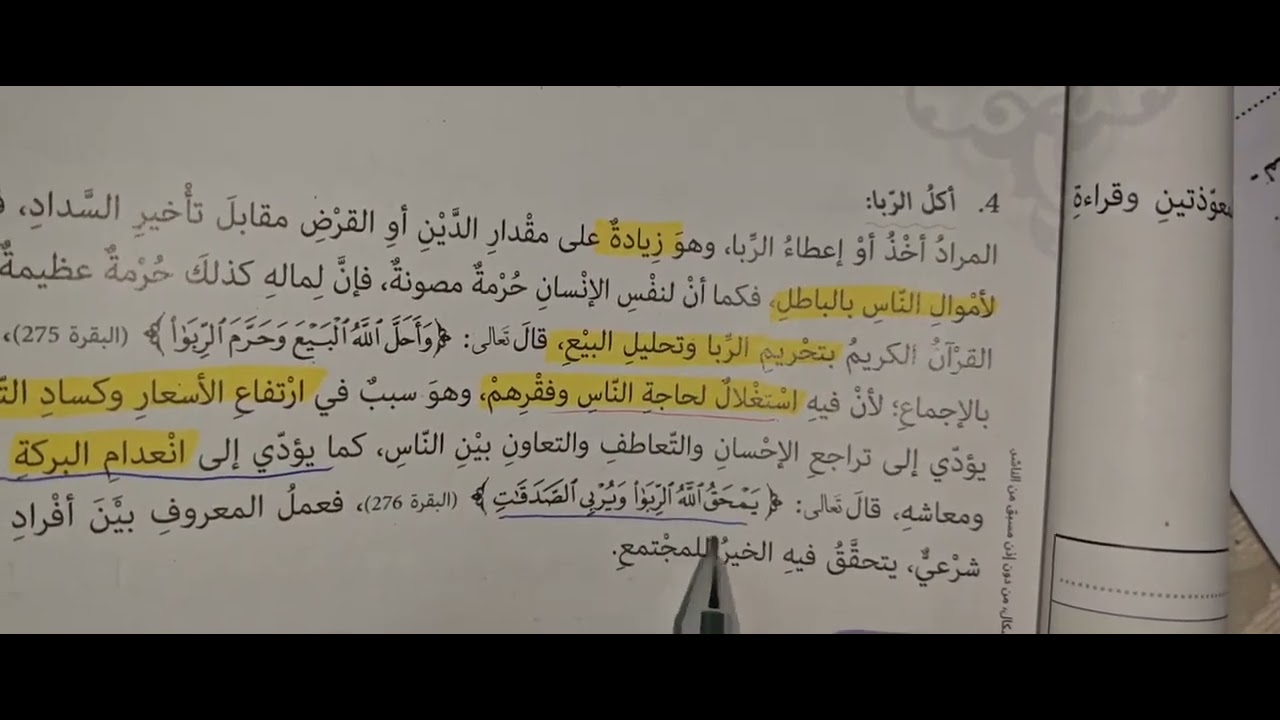 4. أكلُ الرّبا:
المرادُ أخْذُ أوْ إعطاءُ الرِّبا، وهوَ زِيادةٌ على مقْدارِ الدَّيْنِ أوِ القرْضِ مقابلَ تأْخيرِ السَّدادِ،
لأمْوالِ النّاسِ بالباطلِ، فكما أنْ لنفْسِ الإنْسانِ حُرْمةٌ مصونةٌ، فإنَّ لِمالهِ كذلكَ حُرْمةٌ عظيمةٌ
القرْآنُ الكريمُ بتحْريمِ الرِّبا وتحليلِ البيْعِ، قالَ تَعَالى: ﴿وَأَحَلَّ ٱللَّهُ ٱلْبَيْعَ وَحَرَّمَ ٱلرِّبَوٰا۟﴾ (البقرة 275)،
بالإجماعِ؛ لأنْ فيهِ اسْتغْلالٌ لحاجةِ النّاسِ وفقْرِهمْ، وهوَ سببٌ في ارْتفاعِ الأسعارِ وكسادِ
يؤدّي إلى تراجعِ الإحْسانِ والتّعاطفِ والتعاونِ بيْنِ النّاسِ، كما يؤدّي إلى انْعدامِ البركةِ
ومعاشهِ، قالَ تَعَالى: ﴿يَمْحَقُ ٱللَّهُ ٱلرِّبَوٰا۟ وَيُرْبِى ٱلصَّدَقَٰتِ﴾ (البقرة 276)، فعملُ المعروفِ بيَّنَ أفْرادِ
شرْعيٌّ، يتحقَّقُ فيهِ الخيرُ للمجْتمعِ.
وقراءةِ
من دون إذن مسبق من الناشر